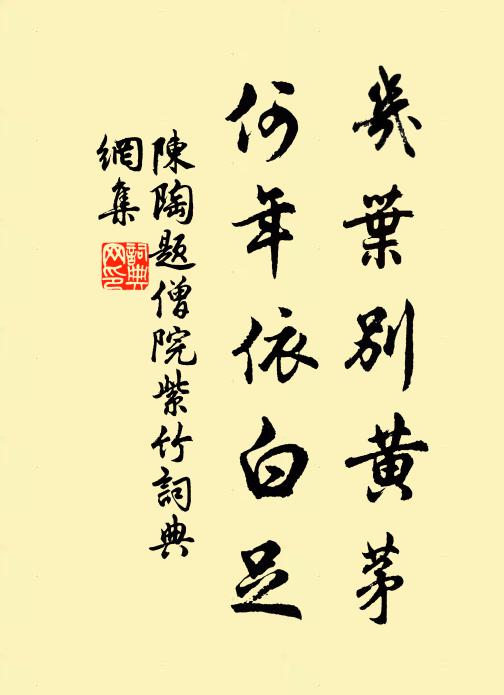 幾葉別黃茅
何年依白足
陳陶題僧院紫竹詞典
網集
詞典
網印